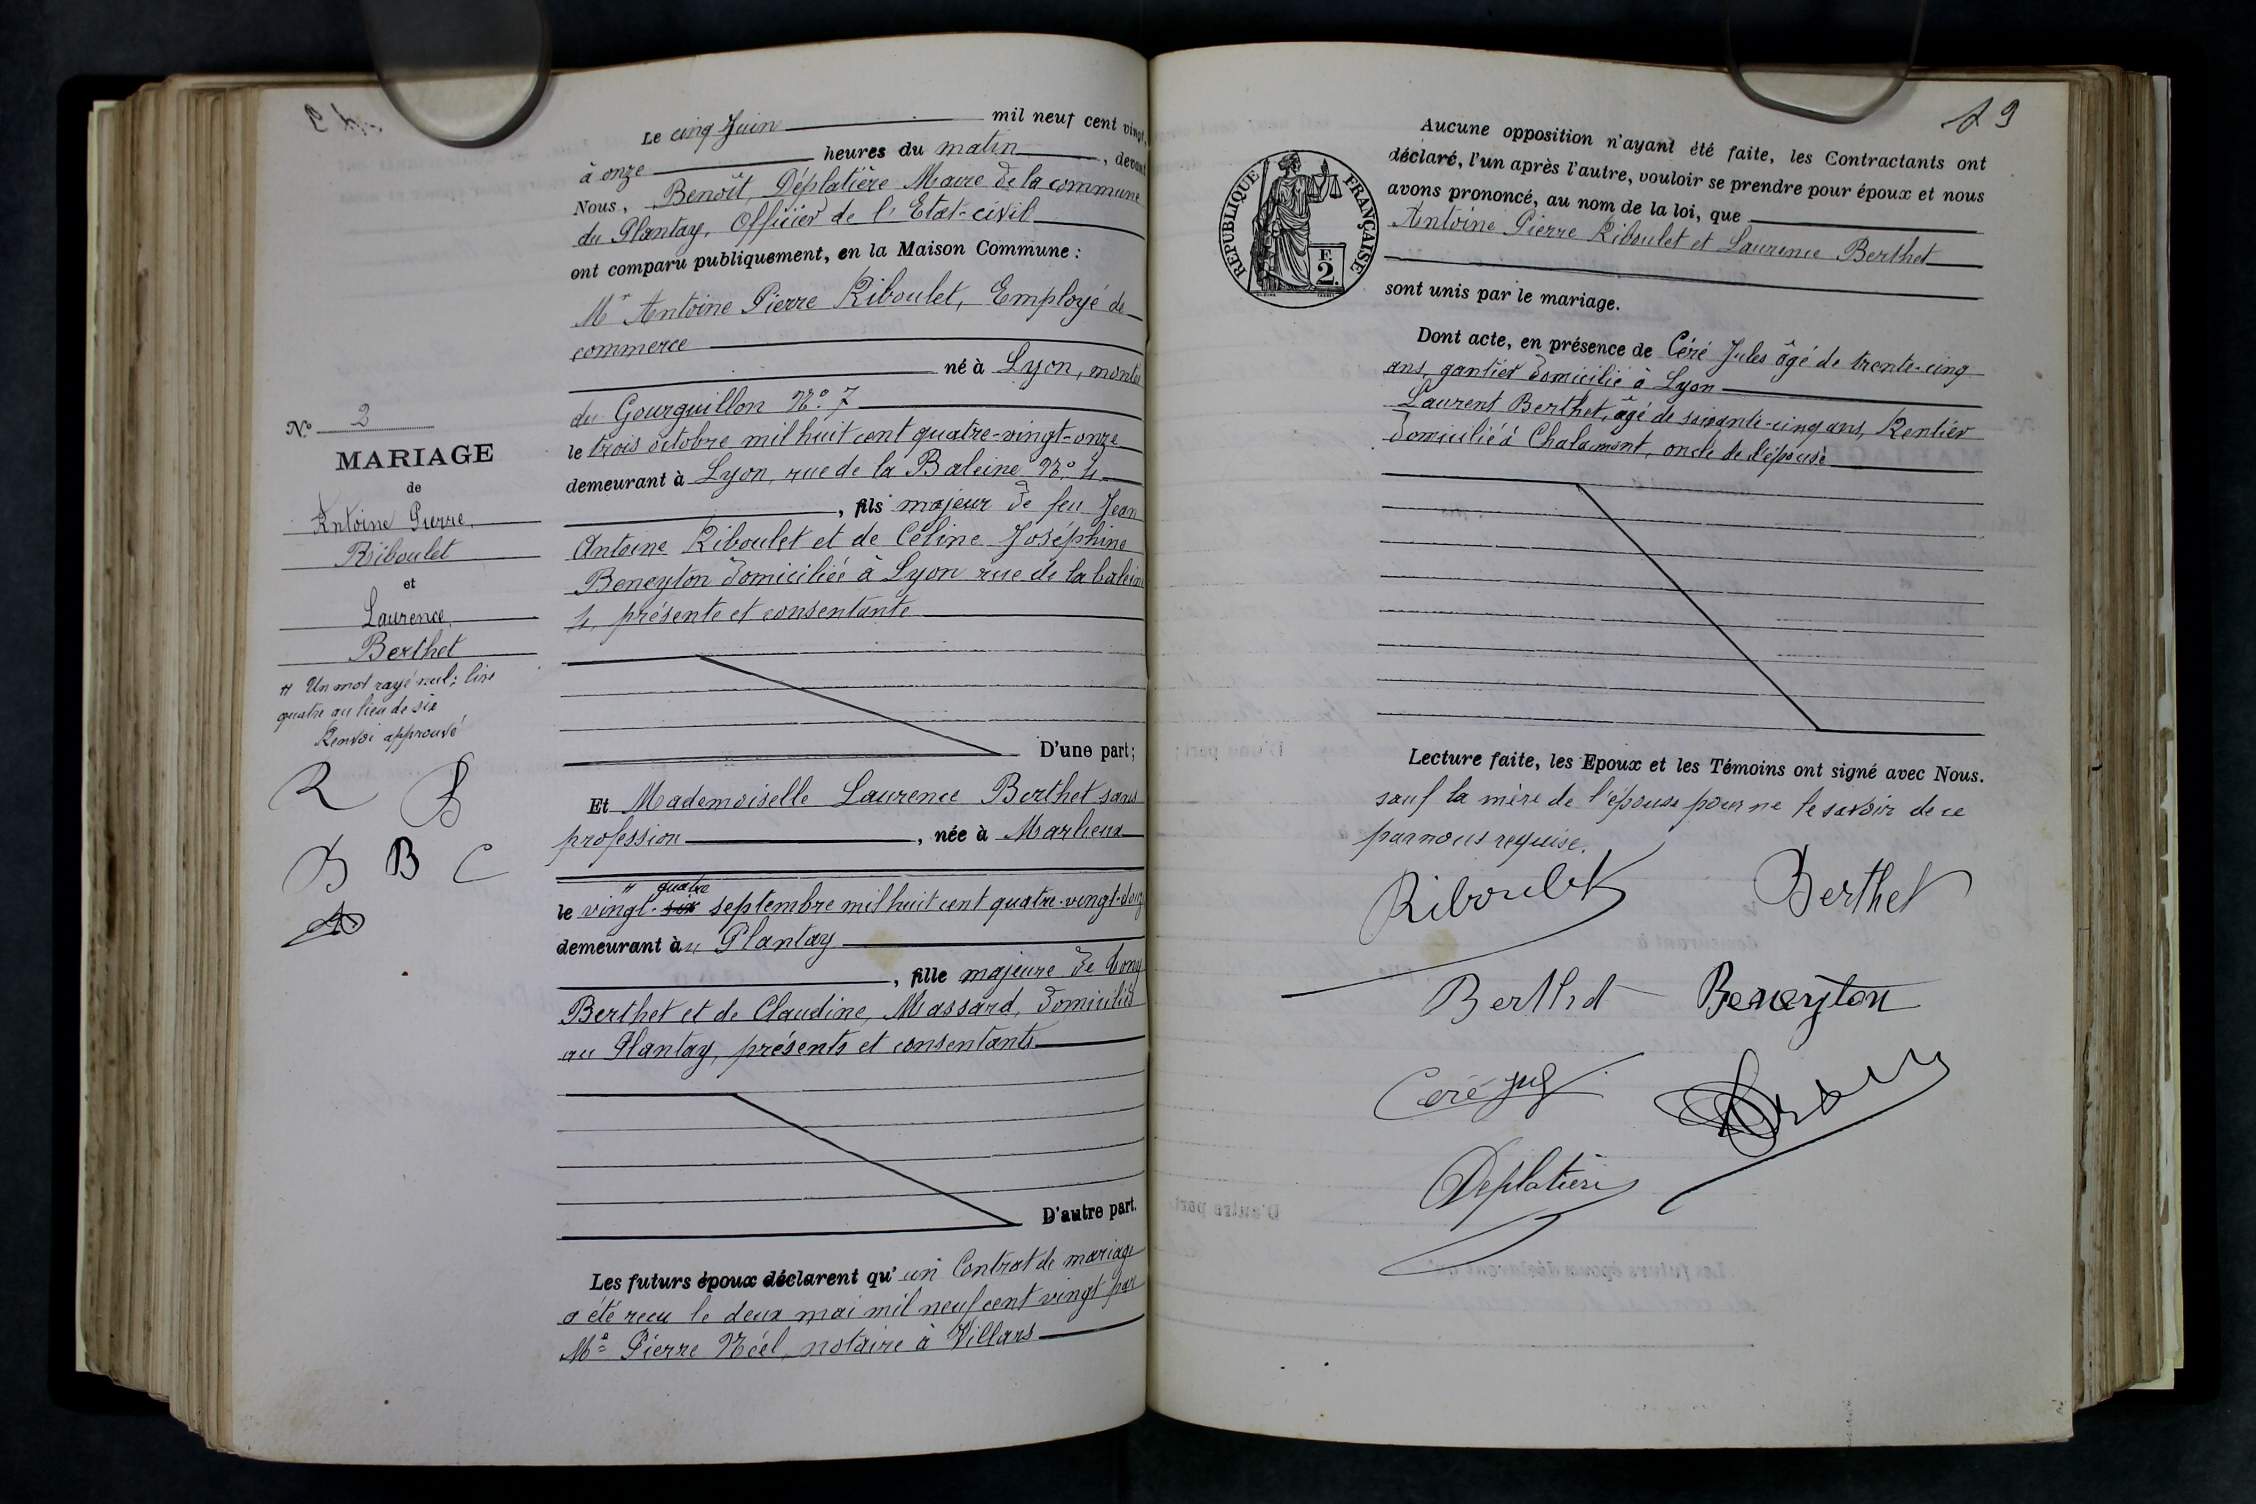 Le cinq Juin mil neuf cent vingt,
à onze heures du matin, devant
Nous, Benoît Déplatière Maire de la commune
du Plantay, Officier de l'Etat-civil
ont comparu publiquement, en la Maison Commune :
Mr Antoine Pierre Riboulet, Employé de
commerce
né à Lyon, montée
du Gourguillon No. 7
le trois octobre mil huit cent quatre-vingt-onze
demeurant à Lyon, rue de la Baleine No. 4
, fils majeur de feu Jean
Antoine Riboulet et de Céline Joséphine
Beneyton domiciliée à Lyon rue de la baleine
4, présente et consentante
D'une part;
No 2
MARIAGE
de
Antoine Pierre
Riboulet
et
Laurence
Berthet
H Un mot rayé nul; lire
quatre au lieu de six
Renvoi approuvé
R B
B B C
Et Mademoiselle Laurence Berthet sans
profession, née à Marlieux
H quatre
le vingt-six septembre mil huit cent quatre-vingt-douze
demeurant àu Plantay
, fille majeure de Tony
Berthet et de Claudine Massard, domiciliés
au Plantay, présents et consentants
D'autre part.
Les futurs époux déclarent qu'un Contrat de mariage
a été reçu le deux mai mil neuf cent vingt par
Me Pierre Noél, notaire à Villars
19
REPUBLIQUE FRANÇAISE
E
2.
Aucune opposition n'ayant été faite, les Contractants ont
déclaré, l'un après l'autre, vouloir se prendre pour époux et nous
avons prononcé, au nom de la loi, que
Antoine Pierre Riboulet et Laurence Berthet
sont unis par le mariage.
Dont acte, en présence de Céré Jules âgé de trente-cinq
ans, gantier domicilié à Lyon
Laurent Berthet, âgé de soixante-cinq ans, Rentier
domicilié à Chalamont, oncle de l'épouse
Lecture faite, les Epoux et les Témoins ont signé avec Nous.
sauf la mère de l'épouse pour ne le savoir de ce
par nous requise.
Riboulet Berthet
Berthet Beneyton
Céré
Deplatière